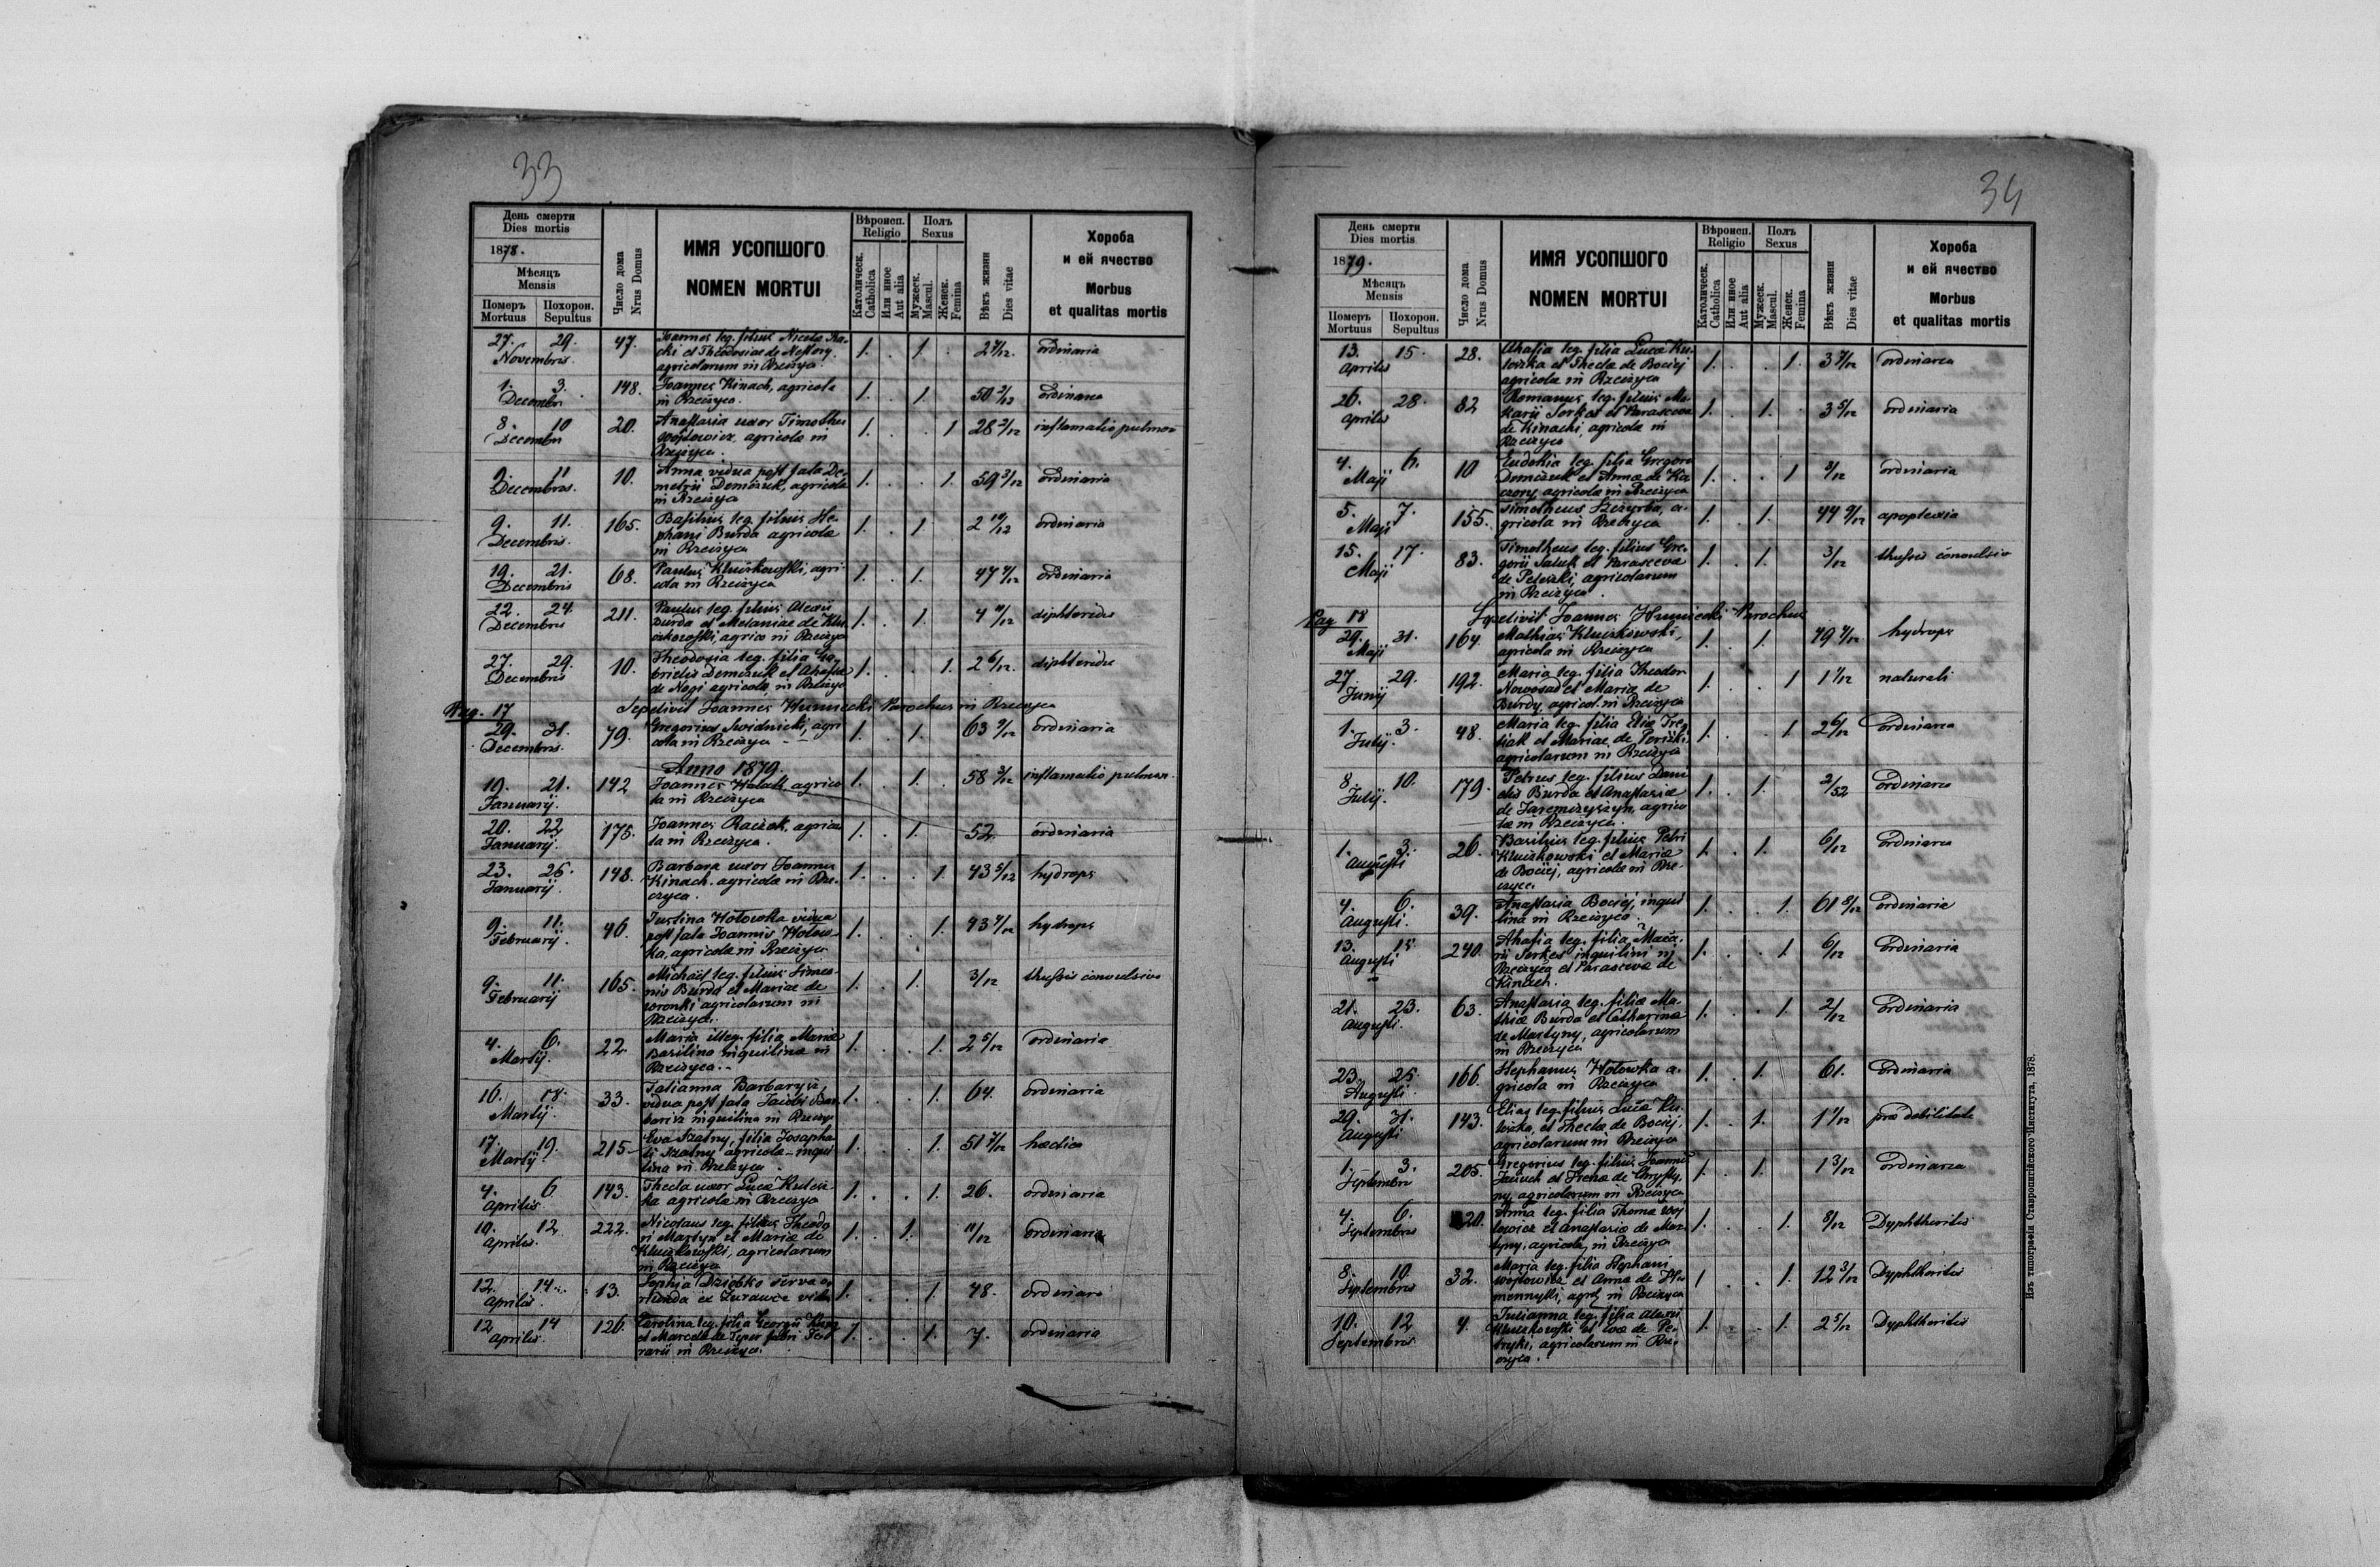 33
День смерти
Dies mortis
1878.
Мѣсяцъ
Mensis
Померъ Похорон.
Mortuus Sepultus
Число дома
Nrus Domus
ИМЯ УСОПШОГО
NOMEN MORTUI
Вѣроисп.
Religio
Католическ.
Catholica
Или иное
Aut alia
Полъ
Sexus
Мужеск.
Mascul.
Женск.
Femina
Вѣкъ жизни
Dies vitae
Хороба
и ей ячество
Morbus
et qualitas mortis
27. 29. Novembris. 47. Joannes leg. filius
agricolarum in Rzeczyca. 1. 1. 2 ordinaria
1. 3. Decembr 148. Joannes Kinach, agricola
in Rzeczyca. 1. 1. 50 2/12 ordinaria
8. 10 Decembr 20. Anastasia uxor Timothei
Wojtowicz, agricola in
Rzeczyca. 1. 1 28 inflamatio pulmon
9. 11 Decembris. 10. Anna vidua post fata De-
metrii Demczuk, agricola
in Rzeczyca 1. 1. 59 3/12 ordinaria
9. 11. Decembris. 165. Basilius leg. filius Ste-
phani Burda agricola
in Rzeczyca 1. 1 2 10/12 ordinaria
19. 21. Decembris 68. Paulus Kluczkowski, agri
cola in Rzeczyca 1. 1. 47 ordinaria
22. 24. Decembris 211. Paulus leg. filius Alexii
Burda et Melaniae de Klu-
czkowski, agrico in Rzeczyca 1. 1. 4 11/12 diphteridis
27. 29. Decembris 10. Theodosia leg. filia Ga-
brielis Demczuk et Ahafia
de Nogi agricola, in Rzeczyca 1. 1. 2 6/12. diphteridis
Sepelivit Joannes Humiecki Parochus in Rzeczyca
Pag. 17
29. 31. Decembris. 79. Gregorius Swidnicki, agri
cola in Rzeczyca 1. 1. 63 ordinaria
Anno 1879.
19. 21. Januarij. 142 Joannes agrico
la in Rzeczyca 1. 1. 58 inflamatio pulmon.
20. 22 Januarij. 175. Joannes agrico
la in Rzeczyca. 1. 1. 52. ordinaria
23. 25. Januarij. 148. Barbara uxor Joannis
Kinach. agricola in Rze-
czyca. 1. 1. 43 5/12 hydrops
9. 11. Februarij. 46. Justina Hołowka vidua
post fata Joannis Hołow-
ka, agricola in Rzeczyca 1. 1. hydrops
9. 11. Februarij 165. Michael leg. filius Simeo-
nis Burda et Mariae de
Woronki agricolarum in
Rzeczyca. 1. 1. 3/12 thussis convulsiva
4. 6. Martij. 22. Maria illeg. filia Maria
inquilina in
Rzeczyca. 1. 1. 2 5/12 ordinaria
16. 18. Martij. 33. Tatianna Barbarycz,
vidua post fata Jacobi
inquilina in Rzeczyca 1. 1. 64. ordinaria
17. 19. Martij. 215. Eva Szalny, filia Josapha-
ti Szalny agricola inqui
lina in Rzeczyca 1. 1. 51 hectica
4. 6 Aprilis 143. Thecla uxor Luca
agricola in Rzeczyca 1. 1. 26. ordinaria
10. 12 Aprilis. 222. Nicolaus leg. filius Theodo
ri Martyn et Maria de
Kluczkowski, agricolarum
in Rzeczyca 1. 1. 11/12 ordinaria
12. 14. Aprilis. 13. Sophia Dziobko serva
1. 1. 48. ordinaria
12 14 Aprilis. 126. Carolina leg. filia Georgii
et Marcella de
in Rzeczyca. 1. 1. 7. ordinaria
34
День смерти
Dies mortis
1879.
Мѣсяцъ
Mensis
Померъ Похорон.
Mortuus Sepultus
Число дома
Nrus Domus
ИМЯ УСОПШОГО
NOMEN MORTUI
Вѣроисп.
Religio
Католическ.
Catholica
Или иное
Aut alia
Полъ
Sexus
Мужеск.
Mascul.
Женск.
Femina
Вѣкъ жизни
Dies vitae
Хороба
и ей ячество
Morbus
et qualitas mortis
13. 15. Aprilis 28. Ahafia leg. filia Luca
et Thecla de Bociej
agricola in Rzeczyca 1. 1. 3 ordinaria
26. 28. Aprilis 82 Romanus leg. filius Ma-
karii Serkes et Parasceva
de Kinachi, agricola in
Rzeczyca 1. 1. 3 5/12 ordinaria
4. 6. Maji 10 Eudokia leg. filia Gregorii
Demczuk et Anna de
agricola in Rzeczyca 1. 1 3/12 ordinaria
5. 7. Maji 155. Timotheus Szczyrba, a-
gricola in Rzeczyca 1. 1. 44 9/12 apoplexia
15. 17. Maji 83. Timotheus leg. filius Gre-
gorii et Parasceva
de agricolarum
in Rzeczyca. 1. 1. 3/12 thussis convulsiva
Sepelivit Joannes Humiecki Parochus
Pag 18
29. 31. Maji 164. Mathias Kluczkowski,
agricola in Rzeczyca 1. 1. hydrops
27 29. Junij 192. Maria leg. filia Theodor
Nowosad et Maria de
Burdy, agricol. in Rzeczyca 1. 1 1 1/12 naturali
1. 3. Julij. 48. Maria leg. filia Elia
et Mariae de
agricolarum in Rzeczyca 1. 1. 2 6/12 ordinaria
8. 10. Julij. 179. Petrus leg. filius Dani
elis Burda et Anastasia
de agrico
la in Rzeczyca. 1. 1. 2/52 ordinaria
1. 3. Augusti 26. Basilius leg. filius Petri
Kluczkowski et Maria
de Bociej, agricola in Rze-
czyca. 1. 1. 6/12 ordinaria
4. 6. Augusti. 39. Anastasia Bociej, inqui
lina in Rzeczyca. 1. 1. 61 8/12 ordinaria
13. 15 Augusti 240. Ahafia leg. filia Maca-
rii Serkes inquilini in
Rzeczyca et Parasceva de
Kinach. 1. 1 6/12 ordinaria
21. 23. Augusti. 63. Anastasia leg. filia Ma-
thia Burda et Catharina
de Martyny, agricolarum
in Rzeczyca 1. 1. 2/12 ordinaria
23. 25. Augusti. 166. Stephanus Hołowka a-
gricola in Rzeczyca 1. 1. 61. ordinaria
29. 31. Augusti 143. Elias leg. filius Luca
et Thecla de Bociej,
agricolarum in Rzeczyca 1. 1. 1 1/12 pra debilitate
1. 3. Septembris 205. Gregorius leg. filius Joannis
et Irena de
agricolarum in Rzeczyca 1. 1. 1 3/12 ordinaria
4. 6. Septembris 20. Anna leg. filia Thoma Woj
towicz et Anastasia de Mar-
tyny, agricola, in Rzeczyca 1. 1. 8/12 Dyphtheritis
8. 10. Septembris 32. Maria leg. filia Stephani
Wojtowicz et Anna de
in Rzeczyca 1 1. 12 3/12 Dyphtheritis
10. 12 Septembris 4. Julianna leg. filia Alexii
Kluczkowski et Eva de Pe-
tryki, agricolarum in Rze-
czyca. 1. 1. 2 5/12 Dyphtheritis
Изъ типографіи Ставропигійского Института, 1878.